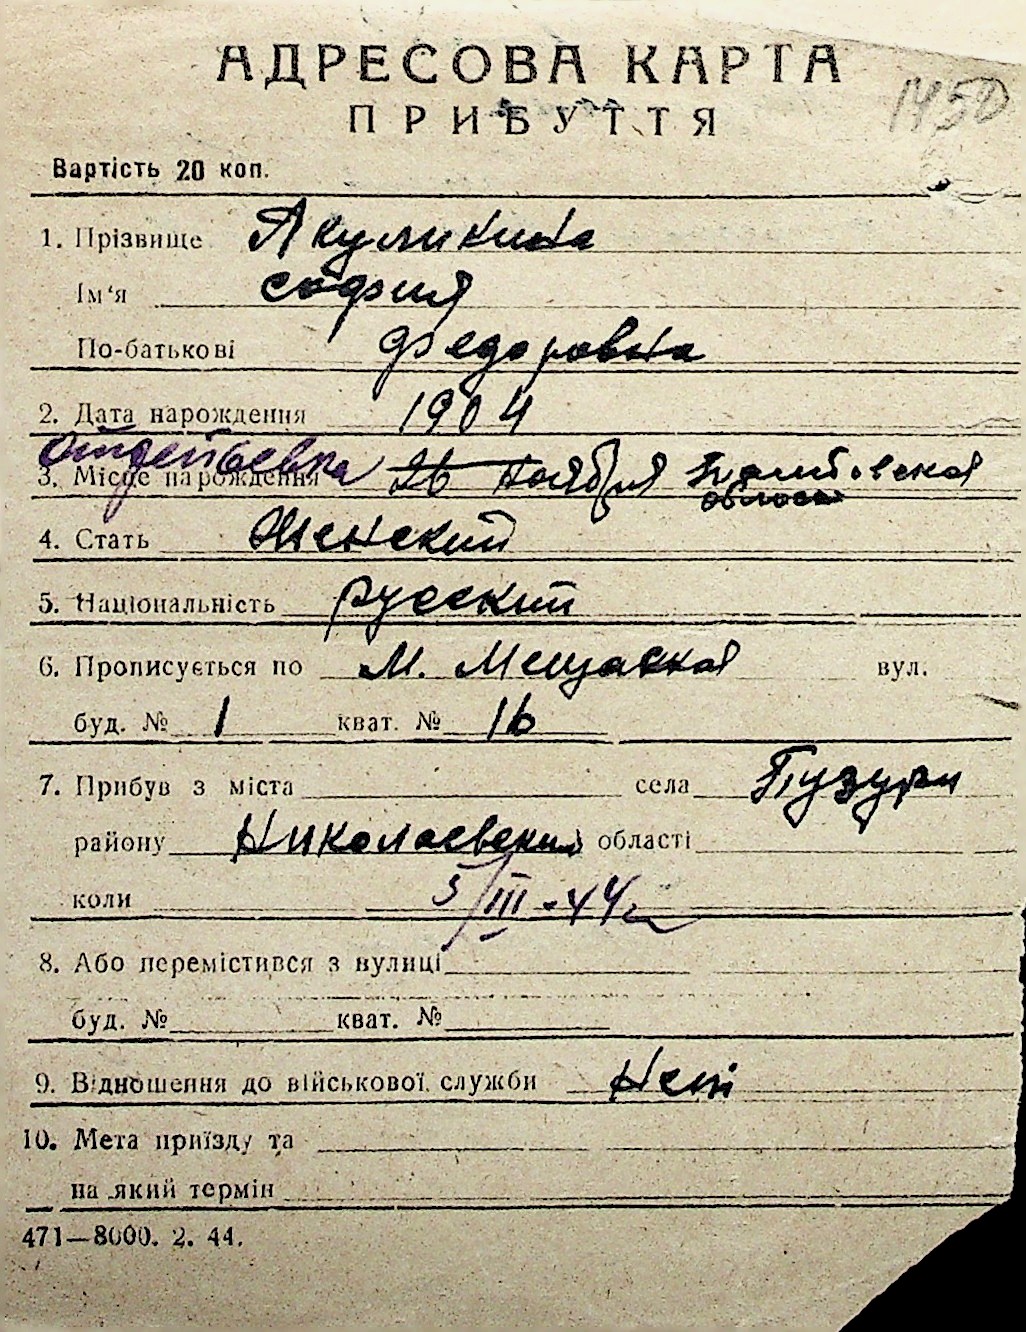 АДРЕСОВА КАРТА
ПРИБУТТЯ
1450
Вартість 20 коп.
1. Прізвище Якумикина
Ім'я София
По-батькові Федоровна
2. Дата нарождення 1904
3. Місце нарождення 26 ноября Тамбовская
область
4. Стать Женский
5. Національність русский
6. Прописується по М. Мещаская вул.
буд. № 1 кват. № 16
7. Прибув з міста села Пузури
району Николаевский області
коли 5/III-44г
8. Або перемістився з вулиці
буд. № кват. №
9. Відношення до військової служби Нет
10. Мета приїзду та
на який термін
471—8000. 2. 44.